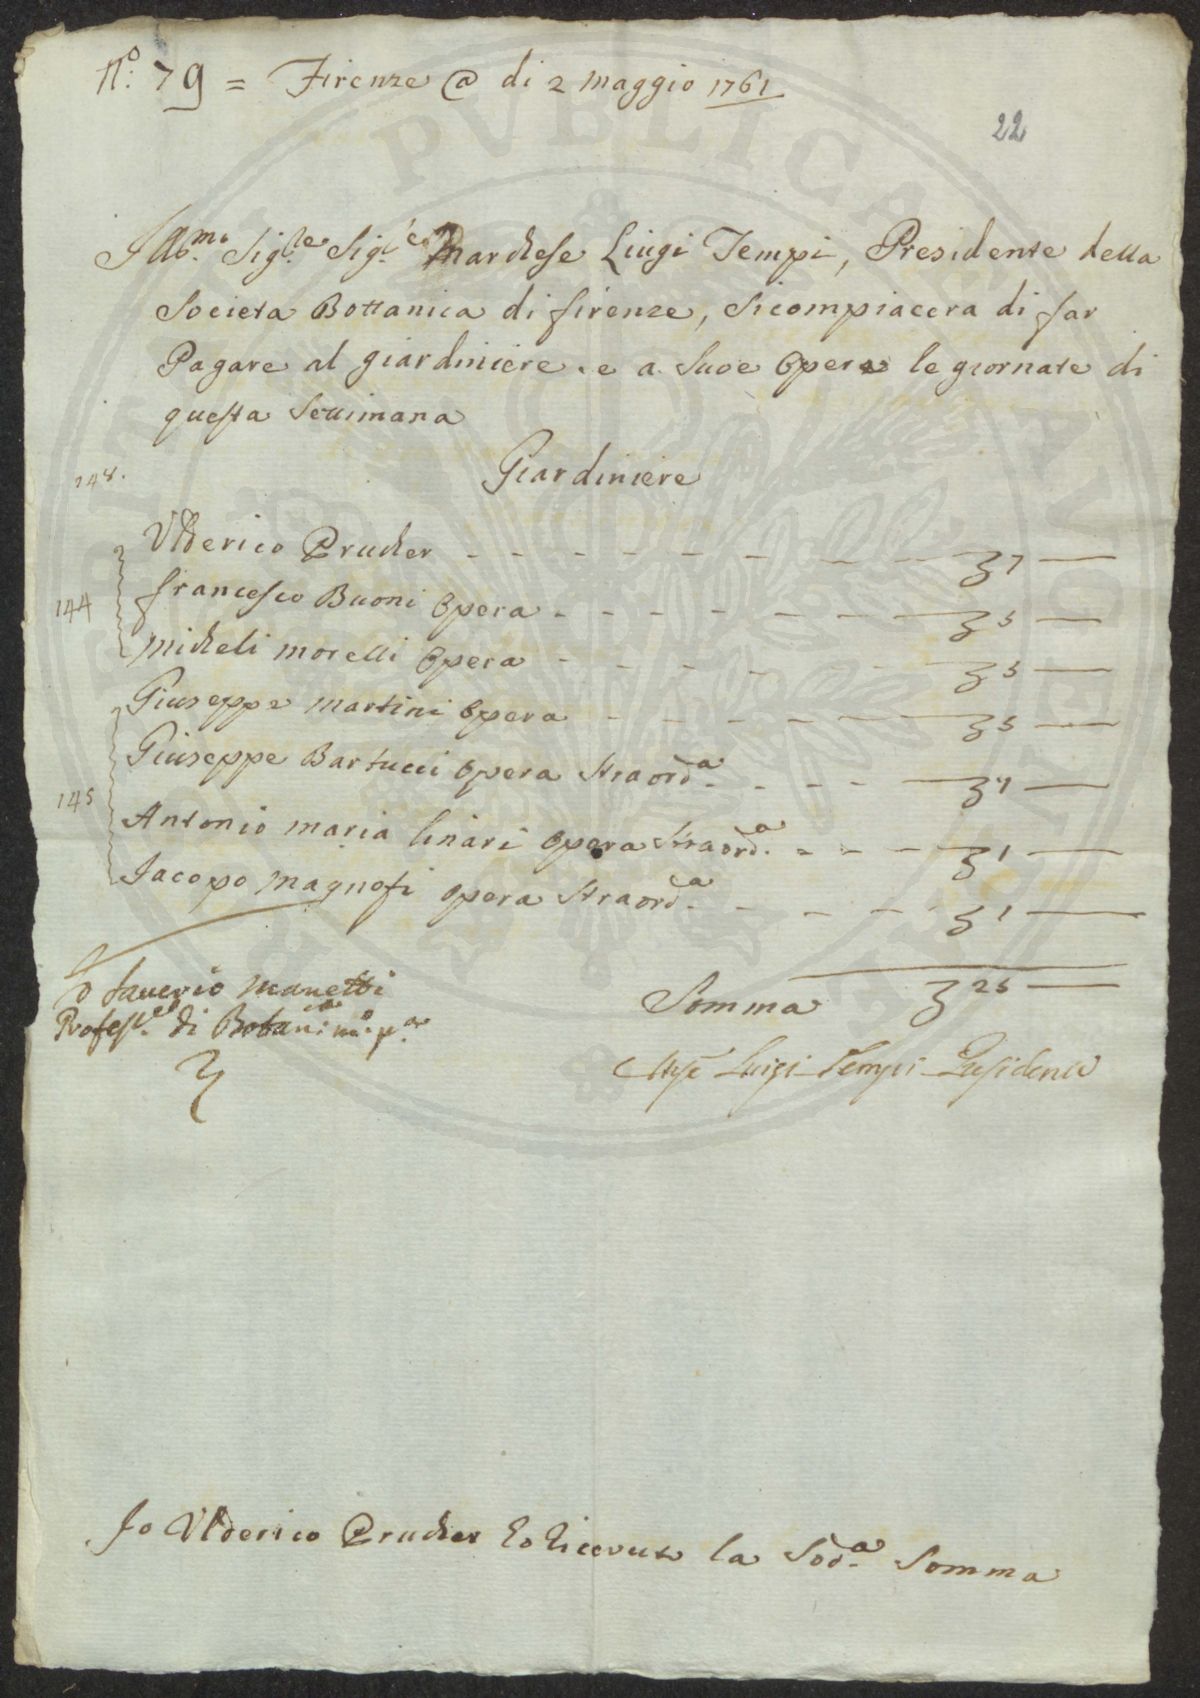 N.o 79 = Firenze @ di 2 maggio 1761
22
Ill.mo Sig.re Sig.re Marchese Luigi Tempi, Presidente della
Societa Bottanica di firenze, Si compiacera di far
Pagare al giardiniere e a Suoe Opere le giornate di
questa Settimana
Giardiniere
148.
Ulderico Prucher - - - - - - - - 7 —
francesco Buoni Opera - - - - - - 5 —
144
Micheli morelli Opera - - - - - - 5 —
Giuseppe Martini Opera - - - - - 5 —
Giuseppe Bartucci Opera Straord.a - - - —
145
Antonio maria linari Opera Straord.a - - - 1 —
Jacopo magnosi opera Straord.a - - - - 1 —
Somma 25 —
Saverio Manetti
Profess.re di Botan.ca m.o p.a
Luigi Tempi Presidente
Io Ulderico Prucher ho ricevuto la Sod.a Somma